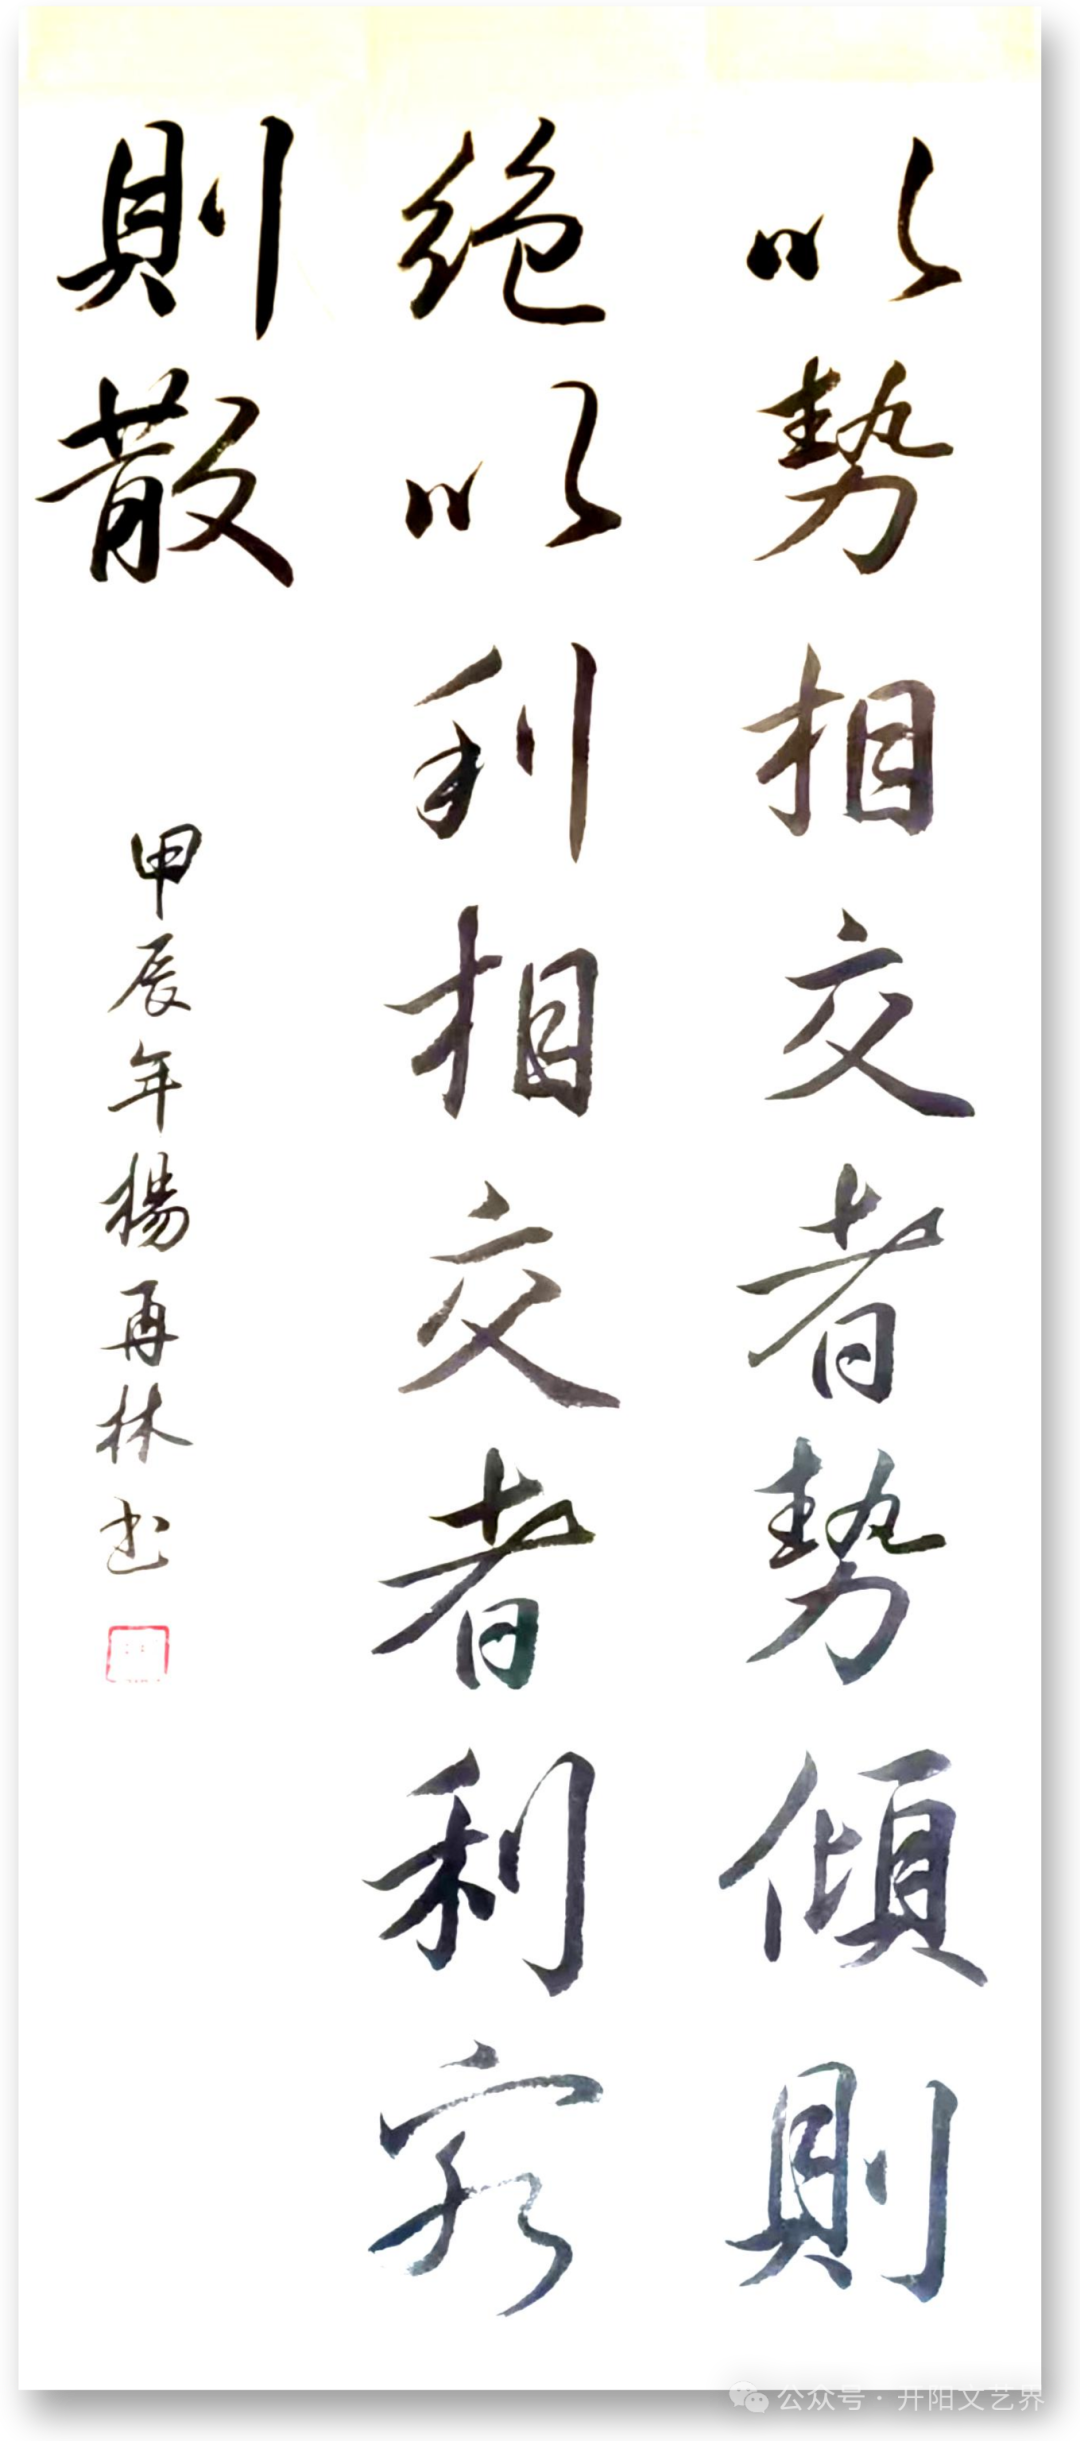 以勢相交者勢傾則
絶以利相交者利穷
則散
甲辰年楊再林书
公众号 · 开阳文艺界